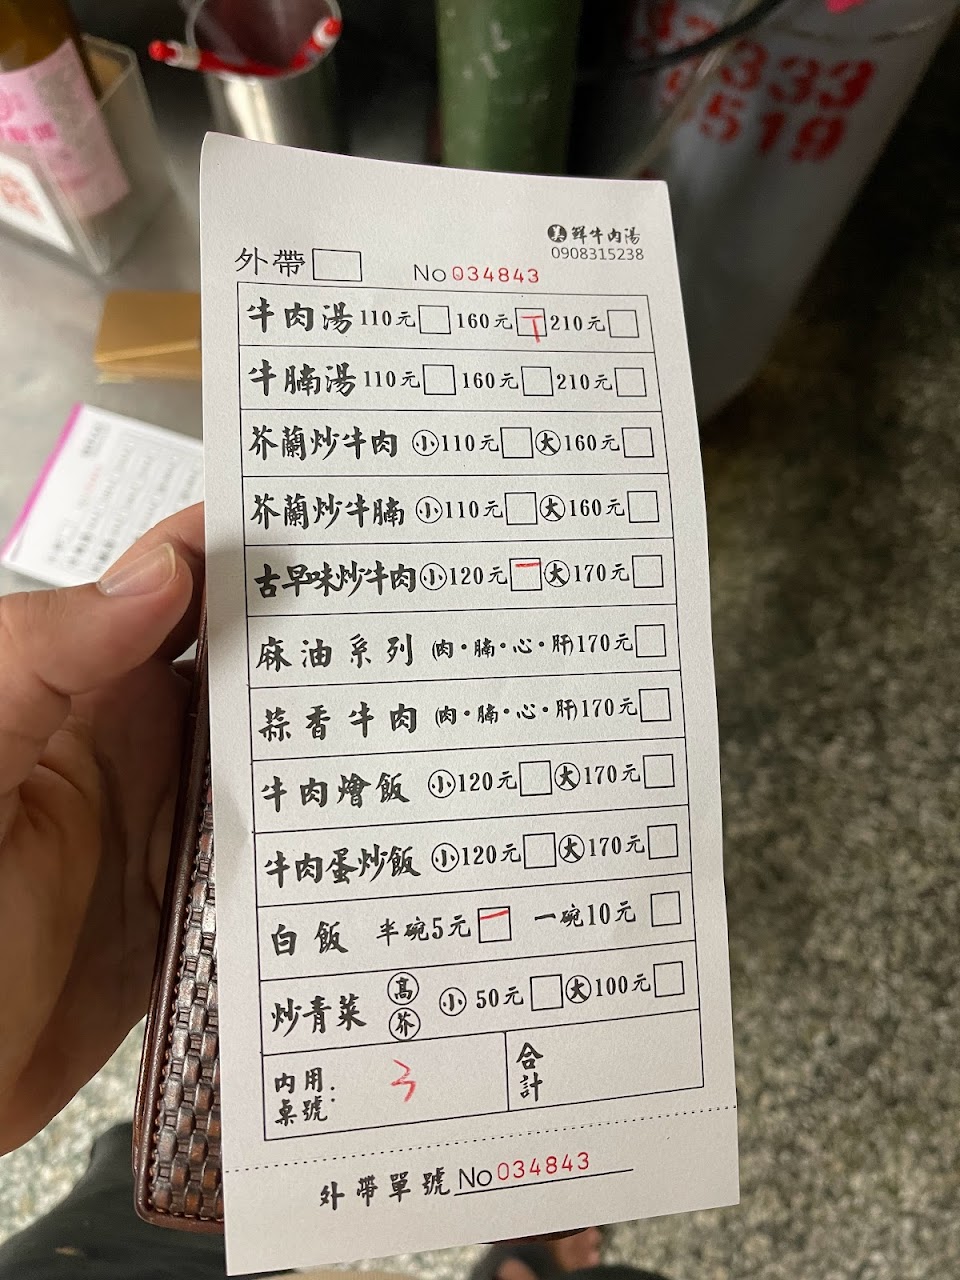 3333
8519
美 鮮牛肉湯
0908315238
外帶 □ No 034843
牛肉湯 110元 □ 160元 □ 210元 □
牛腩湯 110元 □ 160元 □ 210元 □
芥蘭炒牛肉 小 110元 □ 大 160元 □
芥蘭炒牛腩 小 110元 □ 大 160元 □
古早味炒牛肉 小 120元 □ 大 170元 □
麻油系列 (肉・腩・心・肝) 170元 □
蒜香牛肉 (肉・腩・心・肝) 170元 □
牛肉燴飯 小 120元 □ 大 170元 □
牛肉蛋炒飯 小 120元 □ 大 170元 □
白飯 半碗5元 □ 一碗10元 □
炒青菜 高 芥 小 50元 □ 大 100元 □
內用桌號: 3 合計
外帶單號 No 034843